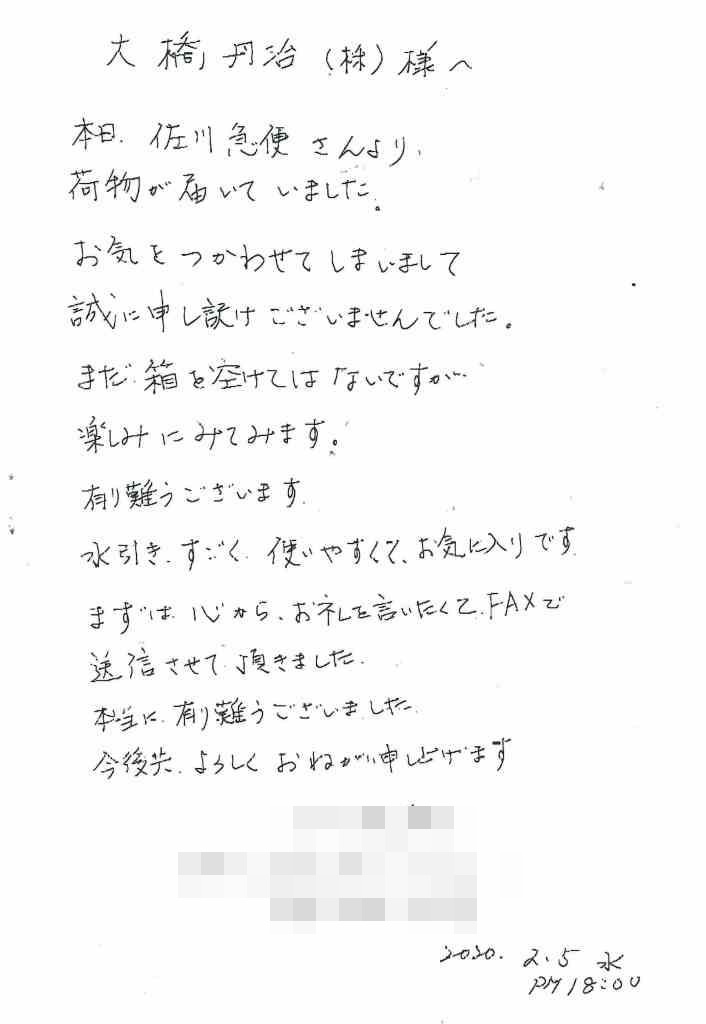 大橋丹治(株)様へ
本日.佐川急便さんより、
荷物が届いていました。
お気をつかわせてしまいまして
誠に申し訳けございませんでした。
まだ.箱を空けてはないですが…
楽しみにみてみます。
有り難うございます.
水引き.すごく.使いやすくて、お気に入りです.
まずは.心から、お礼を言いたくて.FAXで
送信させて頂きました.
本当に.有り難うございました.
今後共.よろしくおねがい申し上げます
2020. 2.5 水
PM 18:00